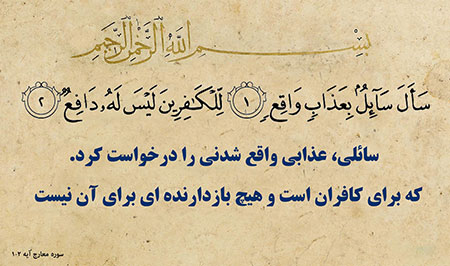 بِسْمِ اللَّهِ الرَّحْمَٰنِ الرَّحِيمِ
سَأَلَ سَآئِلٌۢ بِعَذَابٍ وَاقِعٍ ۝١ لِّلْكَٰفِرِينَ لَيْسَ لَهُۥ دَافِعٌ ۝٢
سائلی، عذابی واقع شدنی را درخواست کرد.
که برای کافران است و هیچ بازدارنده ای برای آن نیست
سوره معارج آیه ۱،۲